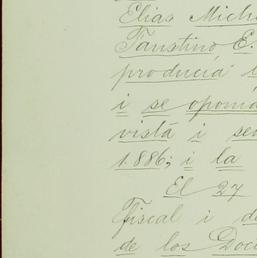 Elias Mich
Faustino E.
producia
i se oponia
vista i sen
1.886; i la
El 27
fiscal i d
de los Doc